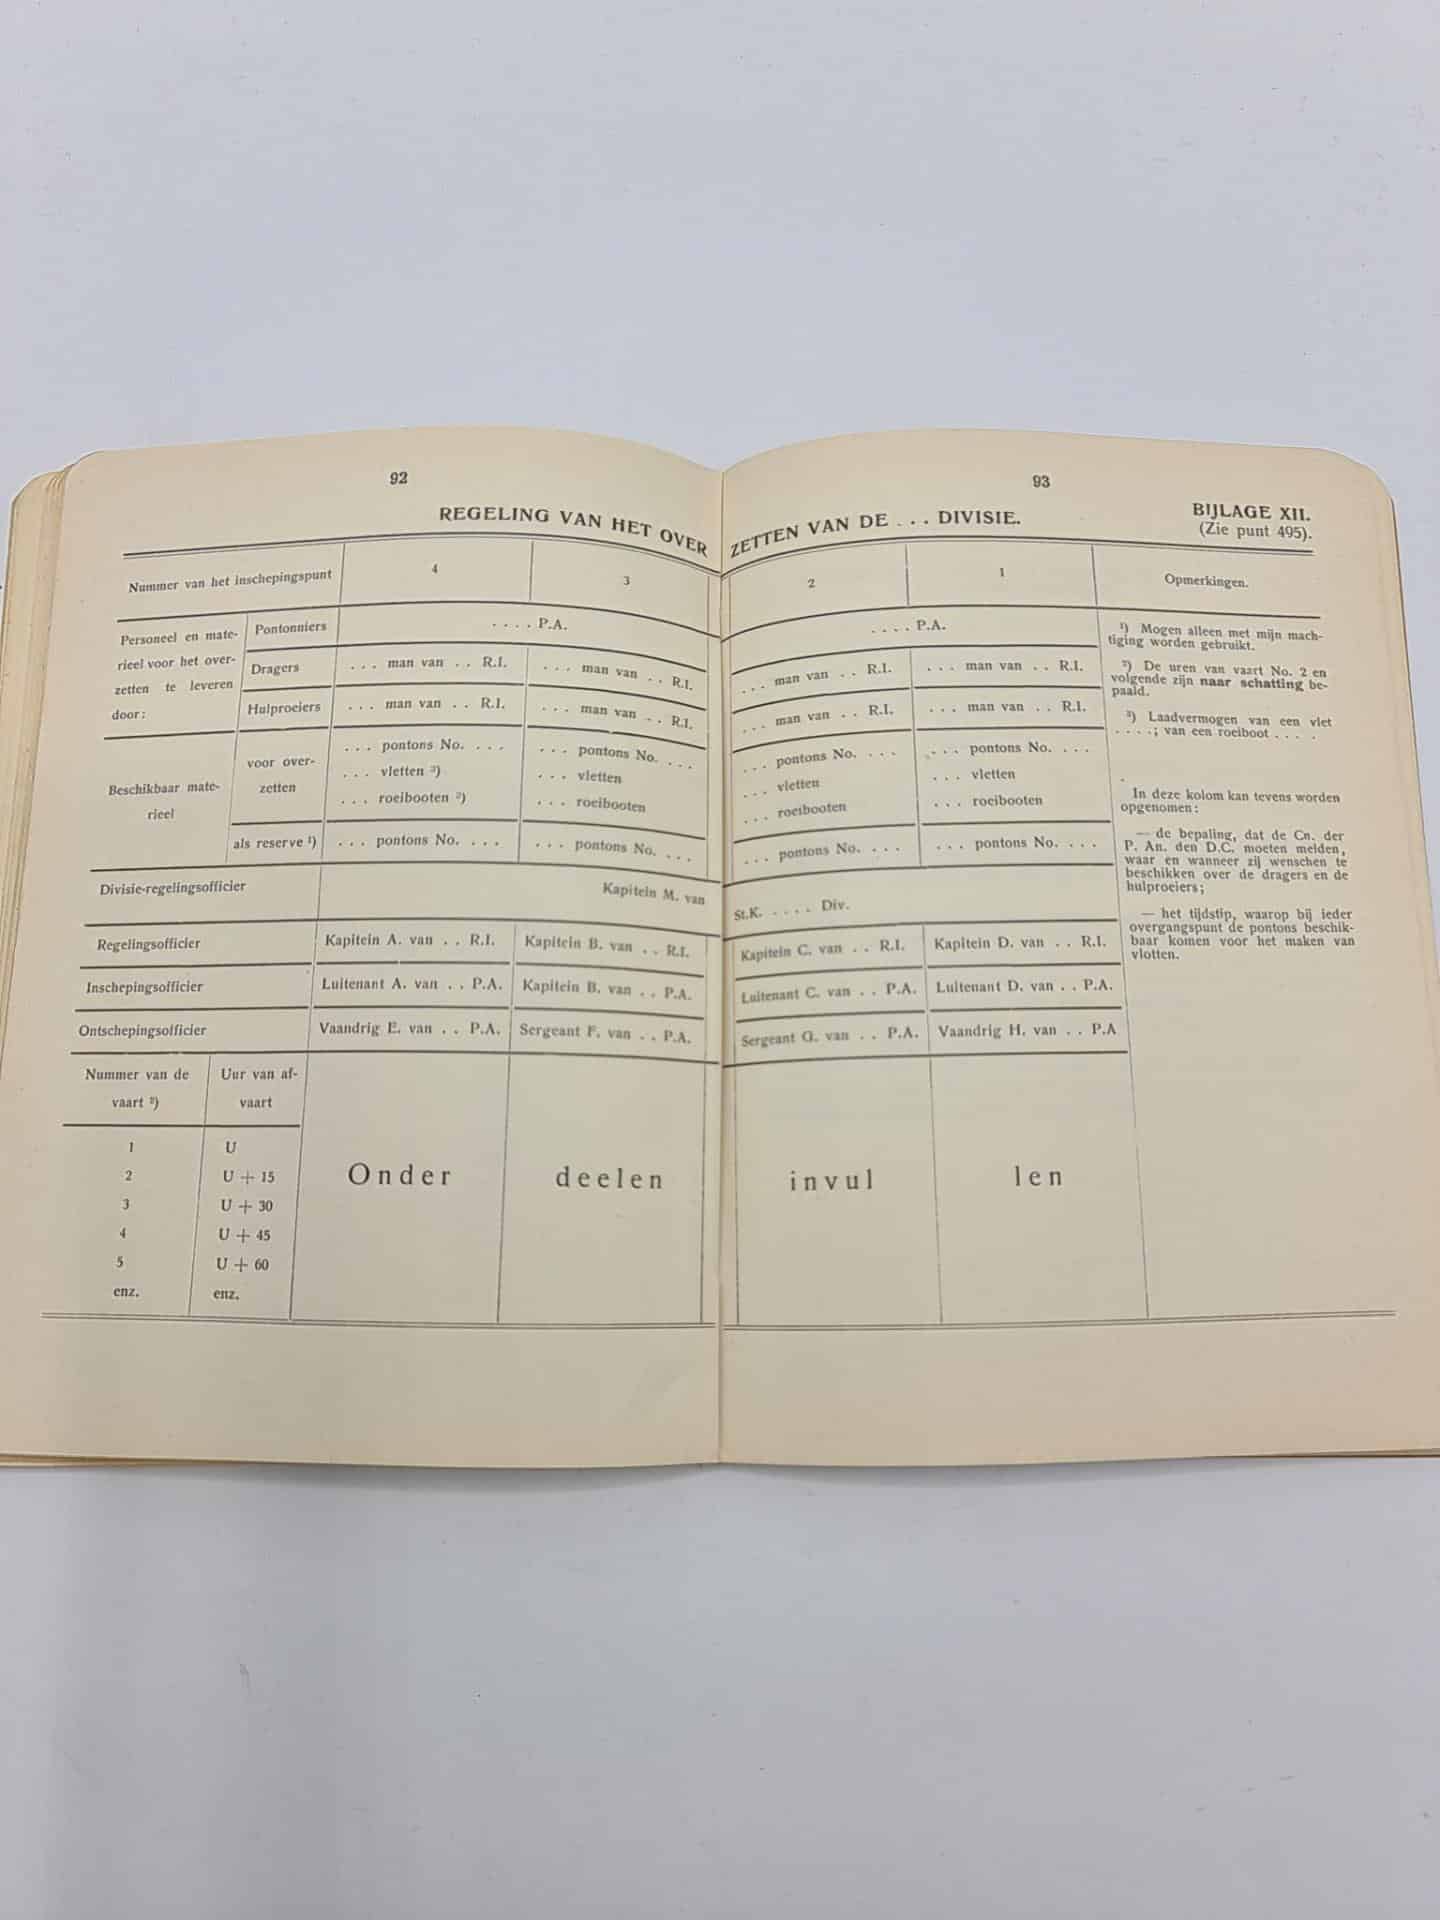 92
93
REGELING VAN HET OVER ZETTEN VAN DE . . . DIVISIE.
BIJLAGE XII.
(Zie punt 495).
Nummer van het inschepingspunt 4 3 2 1 Opmerkingen.
Personeel en mate-
rieel voor het over-
zetten te leveren
door:
Pontonniers . . . . P.A. . . . . P.A.
Dragers . . . man van . . R.I. . . . man van . . R.I. . . . man van . . R.I. . . . man van . . R.I.
Hulproeiers . . . man van . . R.I. . . . man van . . R.I. . . . man van . . R.I. . . . man van . . R.I.
Beschikbaar mate-
rieel
voor over-
zetten
. . . pontons No. . . . . . . pontons No. . . . . . . pontons No. . . . . . . pontons No. . . .
. . . vletten ³) . . . vletten . . . vletten . . . vletten
. . . roeibooten ³) . . . roeibooten . . . roeibooten . . . roeibooten
als reserve ¹) . . . pontons No. . . . . . . pontons No. . . . . . . pontons No. . . . . . . pontons No. . . .
Divisie-regelingsofficier Kapitein M. van St.K. . . . . Div.
Regelingsofficier Kapitein A. van . . R.I. Kapitein B. van . . R.I. Kapitein C. van . . R.I. Kapitein D. van . . R.I.
Inschepingsofficier Luitenant A. van . . P.A. Kapitein B. van . . P.A. Luitenant C. van . . P.A. Luitenant D. van . . P.A.
Ontschepingsofficier Vaandrig E. van . . P.A. Sergeant F. van . . P.A. Sergeant G. van . . P.A. Vaandrig H. van . . P.A
Nummer van de
vaart ²)
Uur van af-
vaart
1 U
2 U + 15
3 U + 30
4 U + 45
5 U + 60
enz. enz.
Onder deelen invul len
¹) Mogen alleen met mijn mach-
tiging worden gebruikt.
²) De uren van vaart No. 2 en
volgende zijn naar schatting be-
paald.
³) Laadvermogen van een vlet
. . . .; van een roeiboot . . . .
In deze kolom kan tevens worden
opgenomen:
— de bepaling, dat de Cn. der
P. An. den D.C. moeten melden,
waar en wanneer zij wenschen te
beschikken over de dragers en de
hulproeiers;
— het tijdstip, waarop bij ieder
overgangspunt de pontons beschik-
baar komen voor het maken van
vlotten.